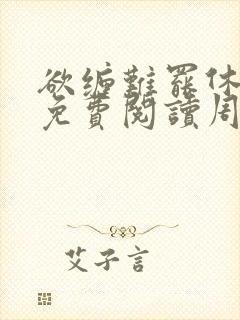 欲纏難罷休
免費閱讀周
艾子言